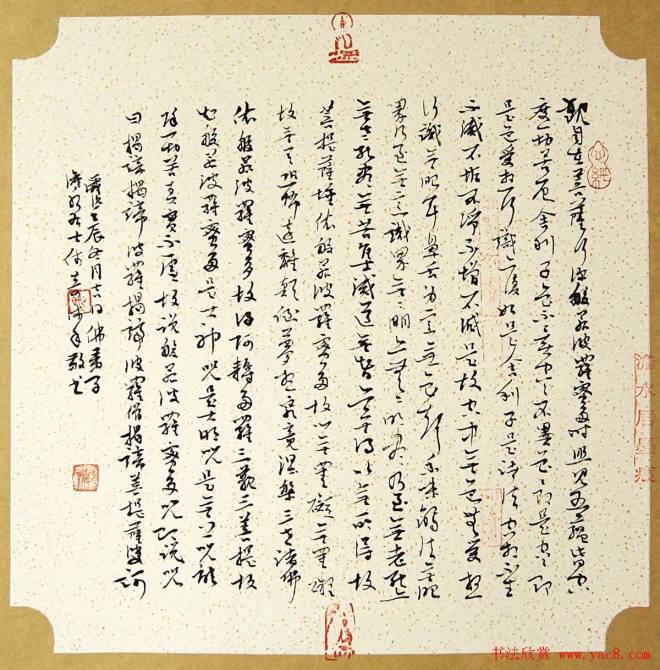 觀自在菩薩行深般若波羅蜜多時照見五蘊皆空
度一切苦厄舍利子色不異空空不異色色即是空空即
是色受想行識亦復如是舍利子是諸法空相不生
不滅不垢不淨不增不減是故空中無色無受想
行識無眼耳鼻舌身意無色聲香味觸法無眼
界乃至無意識界無無明亦無無明盡乃至無老死亦
無老死盡無苦集滅道無智亦無得以無所得故
菩提薩埵依般若波羅蜜多故心無罣礙無罣礙
故無有恐怖遠離顛倒夢想究竟涅槃三世諸佛
依般若波羅蜜多故得阿耨多羅三藐三菩提故
知般若波羅蜜多是大神咒是大明咒是無上咒能
除一切苦真實不虛故說般若波羅蜜多咒即說咒
曰揭諦揭諦波羅揭諦波羅僧揭諦菩提薩婆訶
壬辰冬月十六日佛弟子
居士付志敬書
心經
水居墨痕
书法欣赏 www.yac8.com